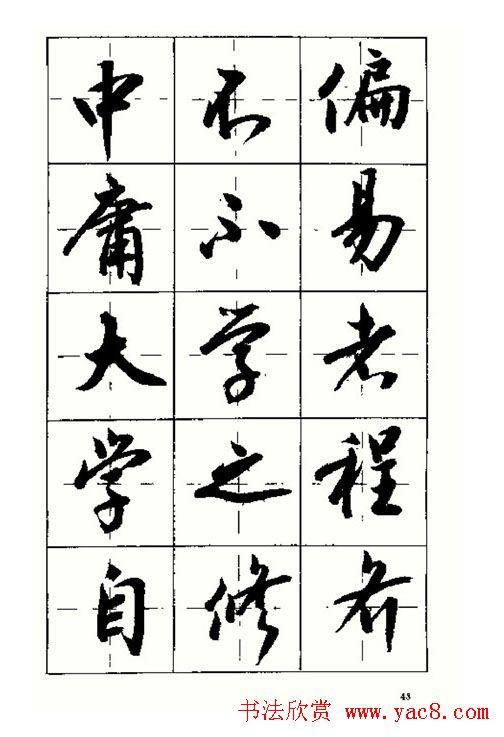 中不偏
庸不易
大学者
学之程
自修齐
43
书法欣赏 www.yac8.com